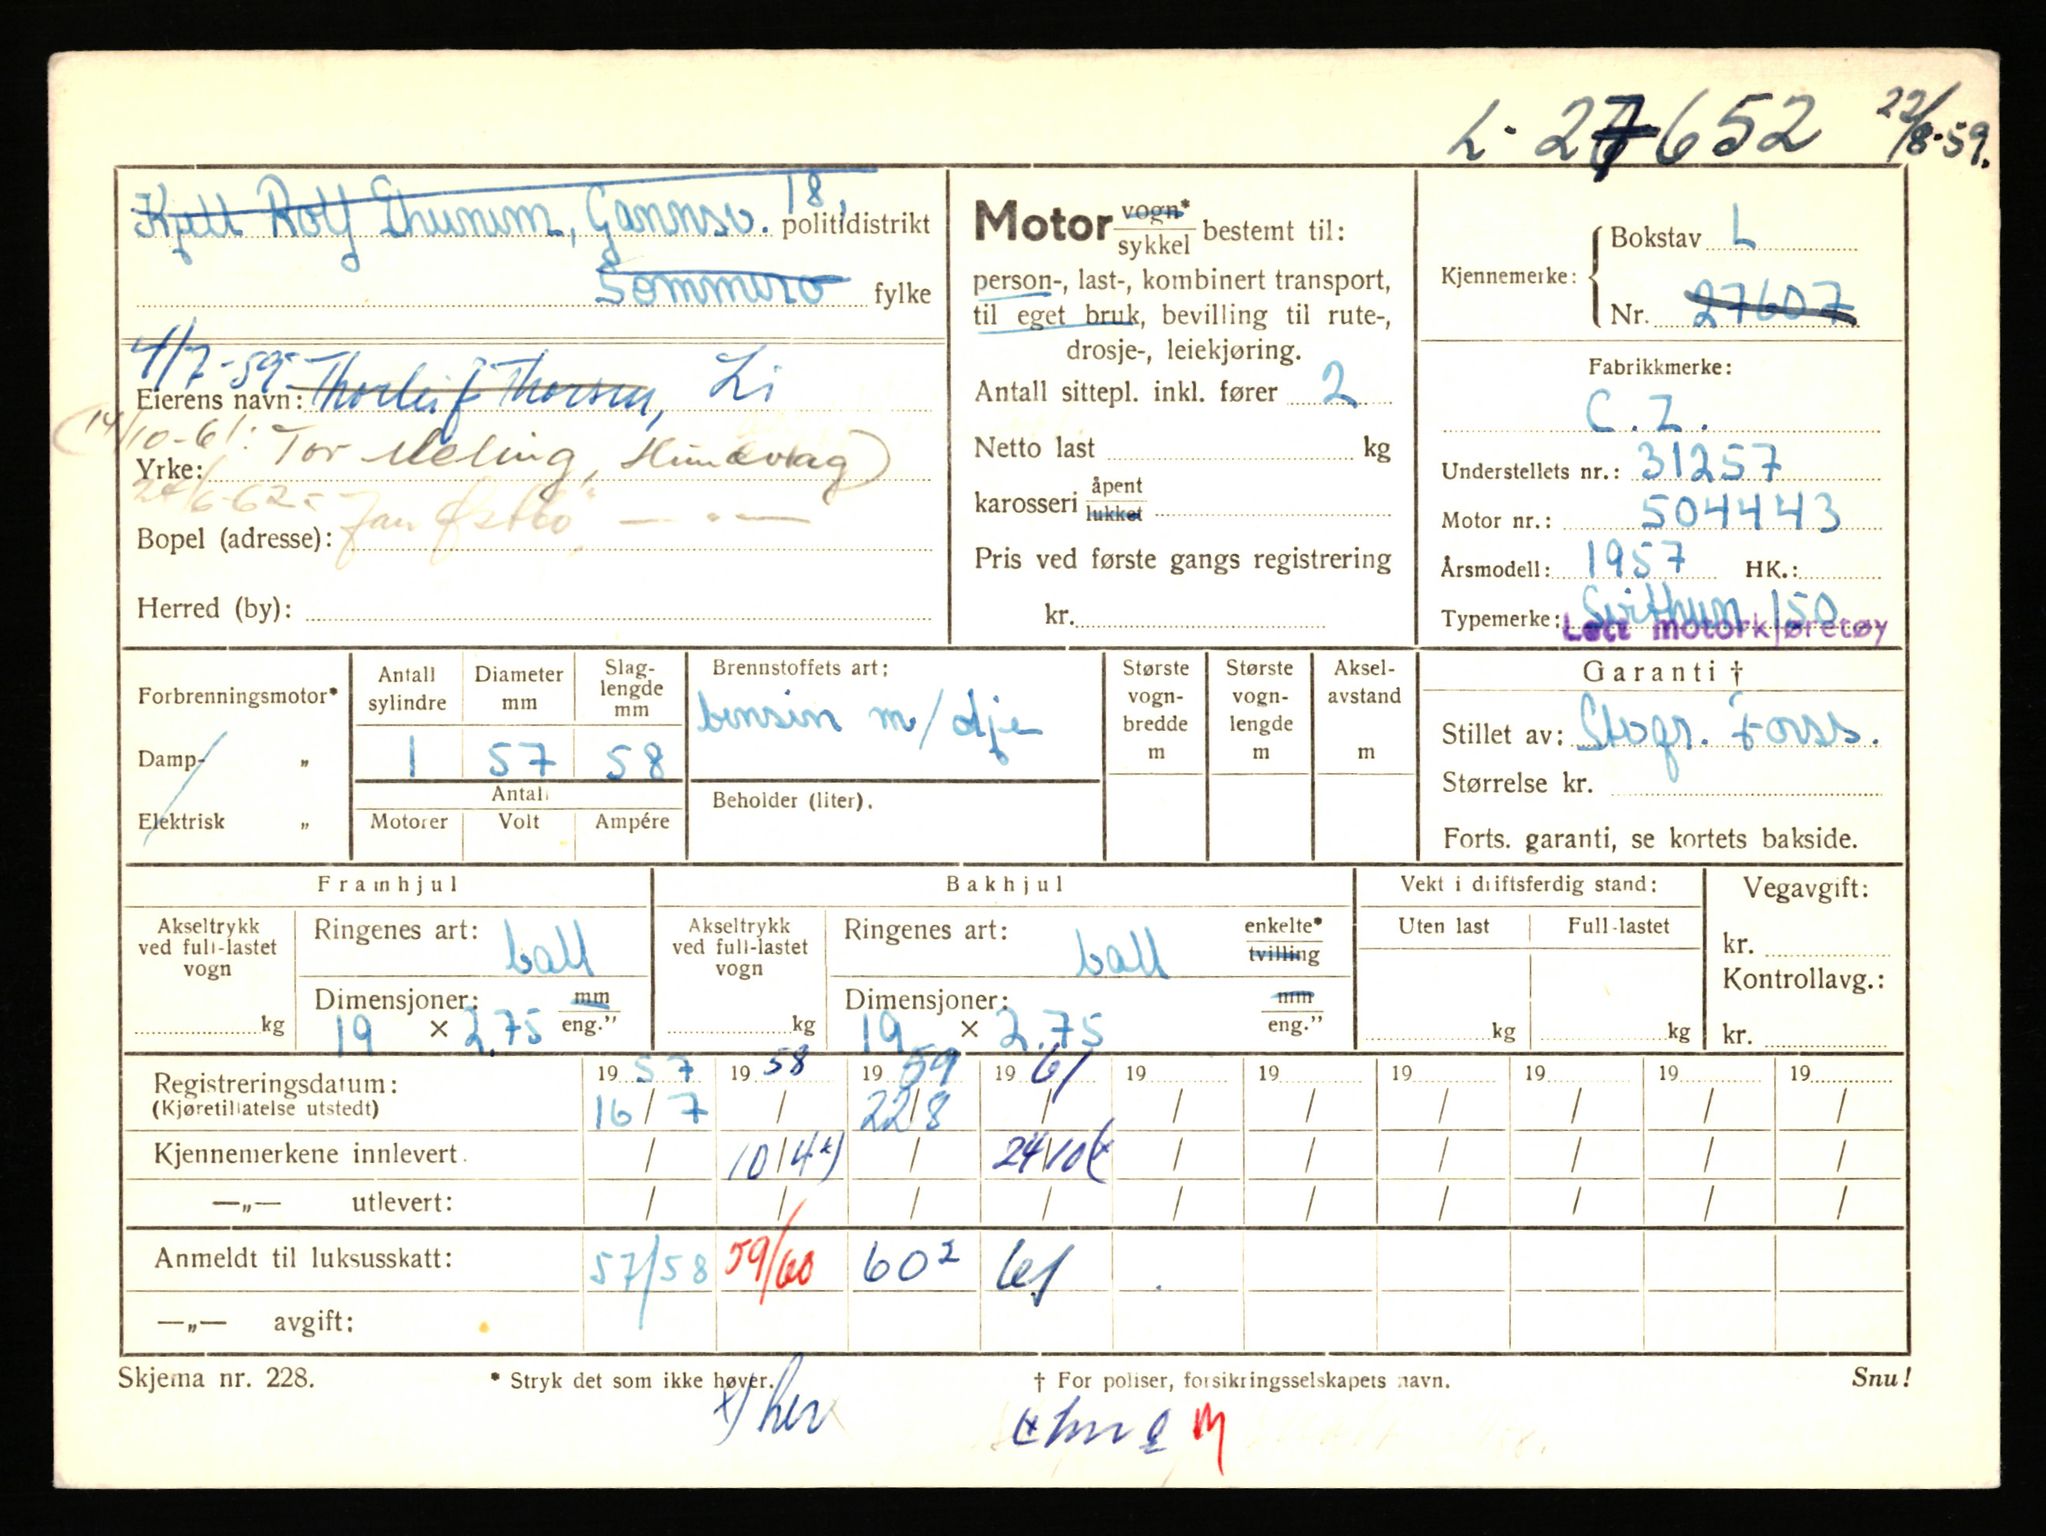 L-27652 22/8-59.
Kjell Rolf Thunem, Gannsv. 18, politidistrikt
Sommero fylke
4/7-59 Eierens navn: Thorleif Thorsen, Li
(14/10-61: Tor Meling, Hundvåg)
Yrke:
24/6-62 - Jan Østbø, — " —
Bopel (adresse):
Herred (by):
Motor vogn* sykkel bestemt til:
person-, last-, kombinert transport,
til eget bruk, bevilling til rute-,
drosje-, leiekjøring.
Antall sittepl. inkl. fører 2
Netto last kg
karosseri åpent lukket
Pris ved første gangs registrering
kr.
Kjennemerke: Bokstav L
Nr. 27607
Fabrikkmerke:
C.Z.
Understellets nr.: 31257
Motor nr.: 504443
Årsmodell: 1957 HK.:
Typemerke: Svithun 150
Lett motorkjøretøy
Forbrenningsmotor*
Damp- „
Elektrisk „
Antall sylindre 1
Diameter mm 57
Slag-lengde mm 58
Antall
Motorer Volt Ampére
Brennstoffets art:
bensin m/olje
Beholder (liter).
Største vogn-bredde m
Største vogn-lengde m
Aksel-avstand m
Garanti †
Stillet av: Storgr. Forss.
Størrelse kr.
Forts. garanti, se kortets bakside.
Framhjul
Akseltrykk ved full-lastet vogn kg
Ringenes art: ball
Dimensjoner: mm eng."
19 × 2.75
Bakhjul
Akseltrykk ved full-lastet vogn kg
Ringenes art: ball enkelte* tvilling
Dimensjoner: mm eng."
19 × 2.75
Vekt i driftsferdig stand:
Uten last Full-lastet
kg kg
Vegavgift:
kr.
Kontrollavg.:
kr.
Registreringsdatum: 1957 1958 1959 1961 19 19 19 19 19 19
(Kjøretillatelse utstedt) 16/7 / 22/8 / / / / / / /
Kjennemerkene innlevert. / 10/4*) / 24/10(* / / / / / /
—„— utlevert: / / / / / / / / / /
Anmeldt til luksusskatt: 57/58 59/60 60² 61
—„— avgift:
Skjema nr. 228. * Stryk det som ikke høver. † For poliser, forsikringsselskapets navn. Snu!
x) her
M